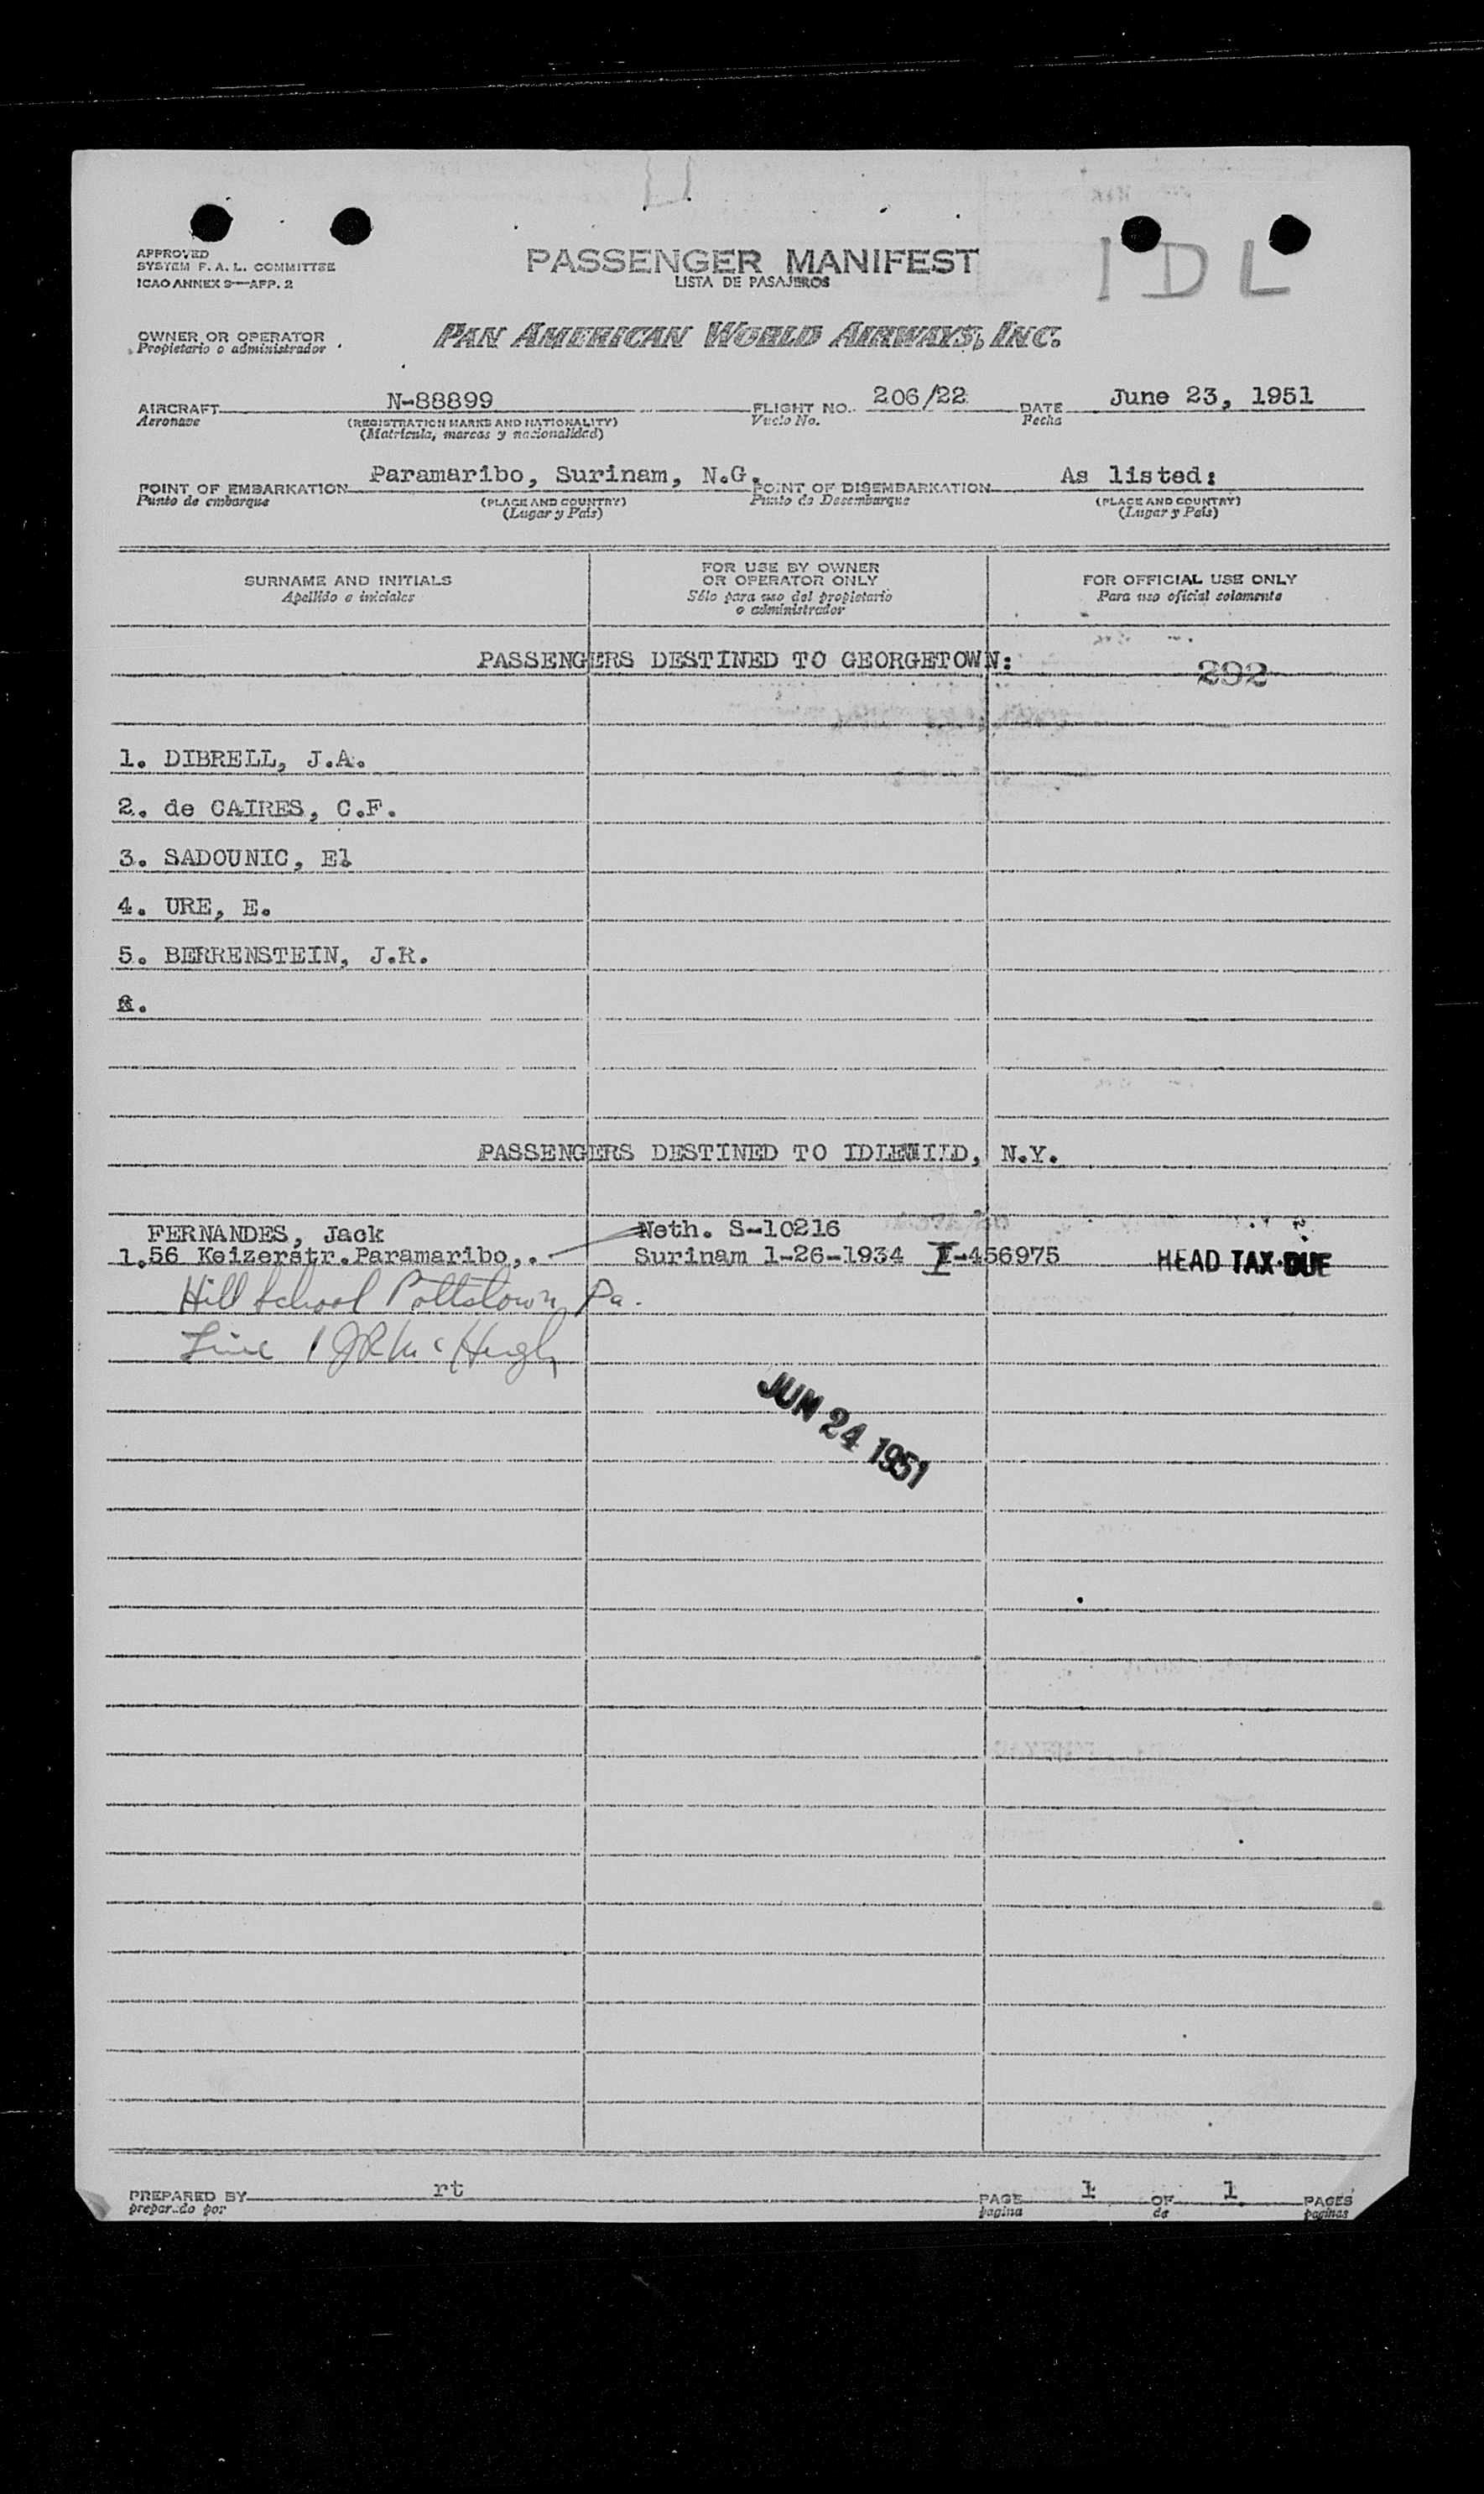 APPROVED
SYSTEM F. A. L. COMMITTEE
ICAO ANNEX 9—APP. 2
PASSENGER MANIFEST
LISTA DE PASAJEROS
IDL
OWNER OR OPERATOR
Propietario o administrador
PAN AMERICAN WORLD AIRWAYS, INC.
AIRCRAFT N-88899 FLIGHT NO. 206/22 DATE June 23, 1951
Aeronave (REGISTRATION MARKS AND NATIONALITY) Vuelo No. Fecha
(Matrícula, marcas y nacionalidad)
POINT OF EMBARKATION Paramaribo, Surinam, N.G. POINT OF DISEMBARKATION As listed:
Punto de embarque (PLACE AND COUNTRY) Punto de Desembarque (PLACE AND COUNTRY)
(Lugar y País) (Lugar y País)
SURNAME AND INITIALS
Apellido e iniciales
FOR USE BY OWNER
OR OPERATOR ONLY
Sólo para uso del propietario
o administrador
FOR OFFICIAL USE ONLY
Para uso oficial solamente
PASSENGERS DESTINED TO GEORGETOWN:
292
1. DIBRELL, J.A.
2. de CAIRES, C.F.
3. SADOUNIC, El
4. URE, E.
5. BERRENSTEIN, J.R.
PASSENGERS DESTINED TO IDLEWILD, N.Y.
FERNANDES, Jack Neth. S-10216
1.56 Keizerstr.Paramaribo,. Surinam 1-26-1934 I-456975 HEAD TAX DUE
Hill School Pottstown Pa.
Line 1 JR McHugh
JUN 24 1951
PREPARED BY rt PAGE 1 OF 1 PAGES
preparado por pagina de paginas